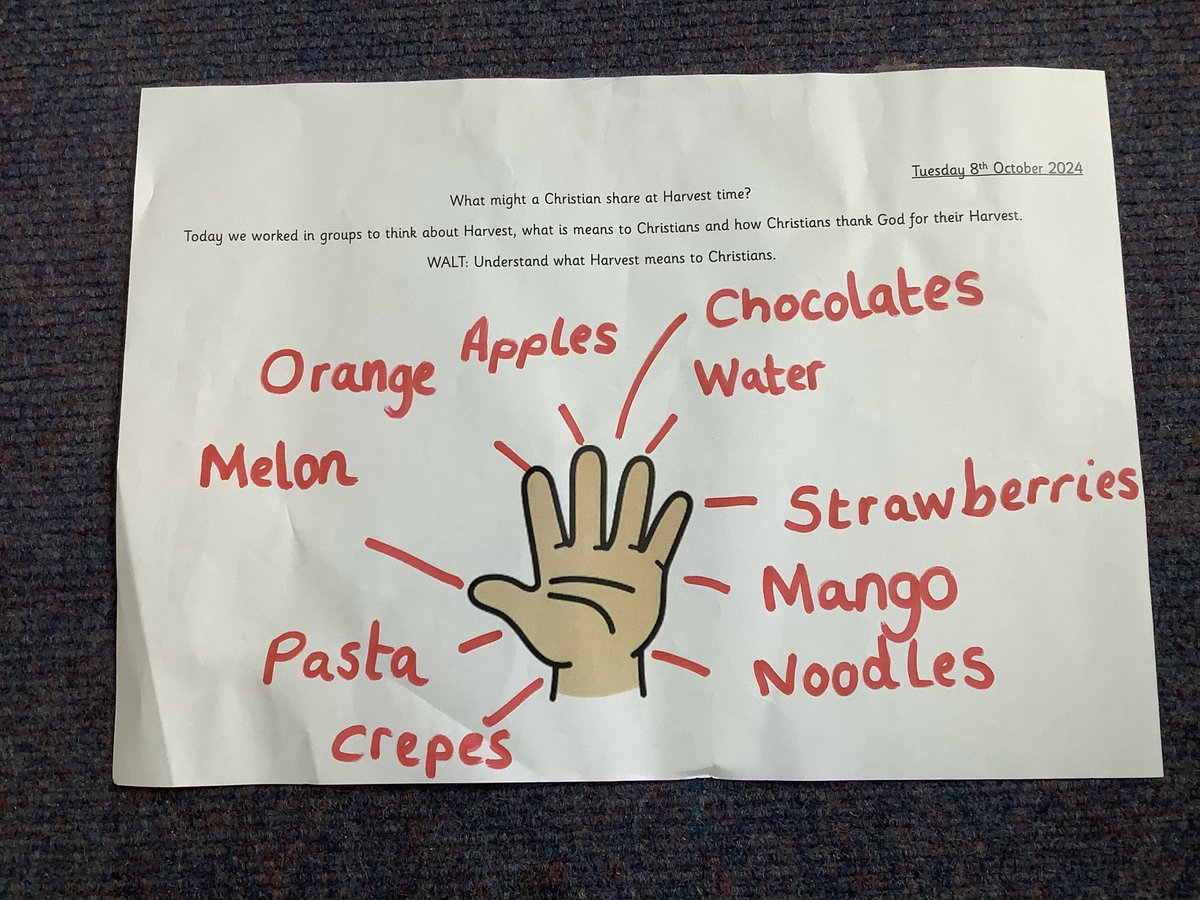 Tuesday 8th October 2024
What might a Christian share at Harvest time?
Today we worked in groups to think about Harvest, what is means to Christians and how Christians thank God for their Harvest.
WALT: Understand what Harvest means to Christians.
Chocolates
Apples
Water
Orange
Melon
Strawberries
Mango
Pasta
Noodles
crepes